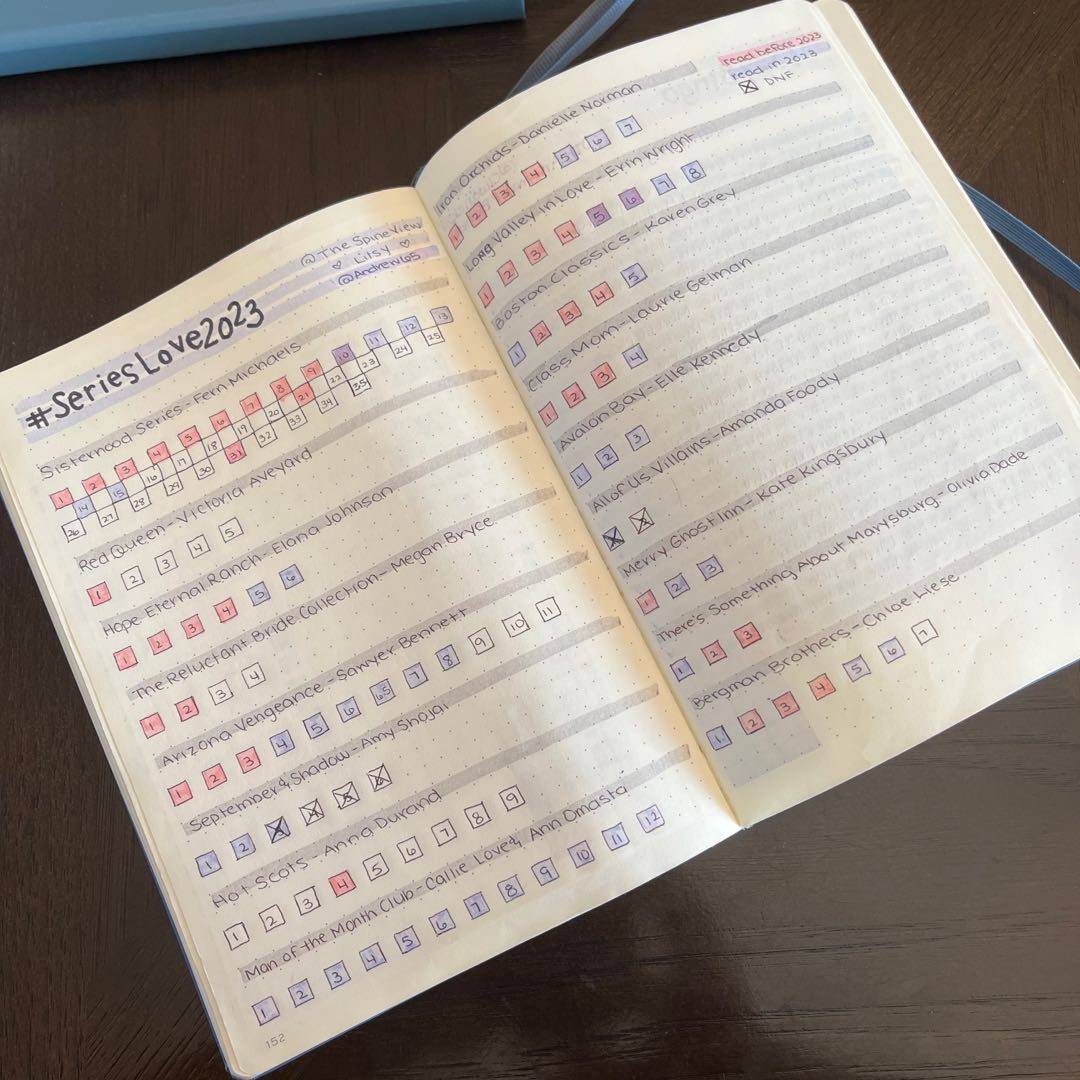 @TheSpineView
♡ Litsy ♡
@Andrew65
#SeriesLove2023
Sisterhood Series - Fern Michaels
1 2 3 4 5 6 7 8 9 10 11 12 13
14 15 16 17 18 19 20 21 22 23 24 25
26 27 28 29 30 31 32 33 34 35
Red Queen - Victoria Aveyard
1 2 3 4 5
Hope Eternal Ranch - Elana Johnson
1 2 3 4 5 6
The Reluctant Bride Collection - Megan Bryce
1 2 3 4
Arizona Vengeance - Sawyer Bennett
1 2 3 4 5 6 6.5 7 8 9 10 11
September & Shadow - Amy Shojai
1 2 3 4 5 6
Hot Scots - Anna Durand
1 2 3 4 5 6 7 8 9
Man of the Month Club - Callie Love & Ann Omasta
1 2 3 4 5 6 7 8 9 10 11 12
152
read before 2023
read in 2023
DNF
Iron Orchids - Danielle Norman
1 2 3 4 5 6 7
Long Valley in Love - Erin Wright
1 2 3 4 5 6 7 8
Boston Classics - Karen Grey
1 2 3 4 5
Class Mom - Laurie Gelman
1 2 3 4
Avalon Bay - Elle Kennedy
1 2 3
All of Us Villains - Amanda Foody
1 2
Merry Ghost Inn - Kate Kingsbury
1 2 3
There's Something About Marysburg - Olivia Dade
1 2 3
Bergman Brothers - Chloe Liese
1 2 3 4 5 6 7